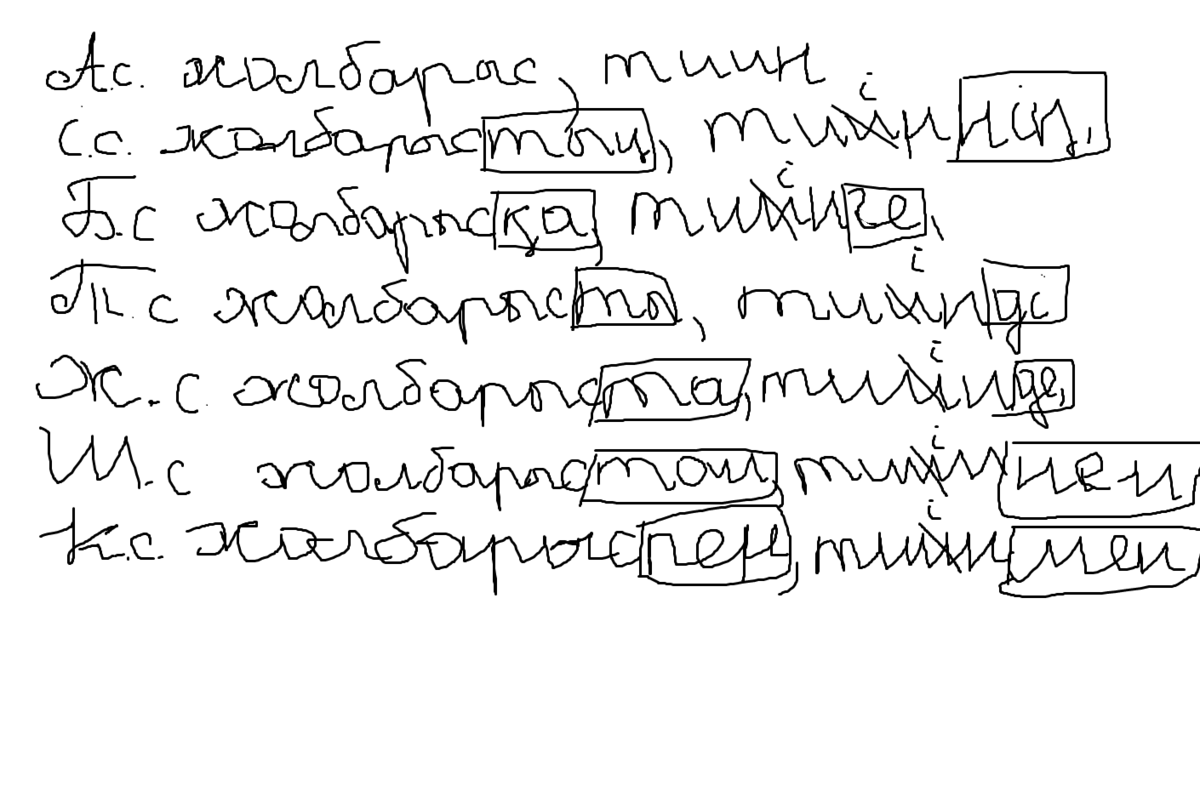 А.с. жолбарыс, тиин
І.с. жолбарыстың, тиіннің,
Б.с жолбарысқа, тиінге,
Т.с жолбарысты, тиінді
Ж.с жолбарыста, тиінде,
Ш.с жолбарыстан, тииіннен
К.с. жолбарыспен, тиінмен